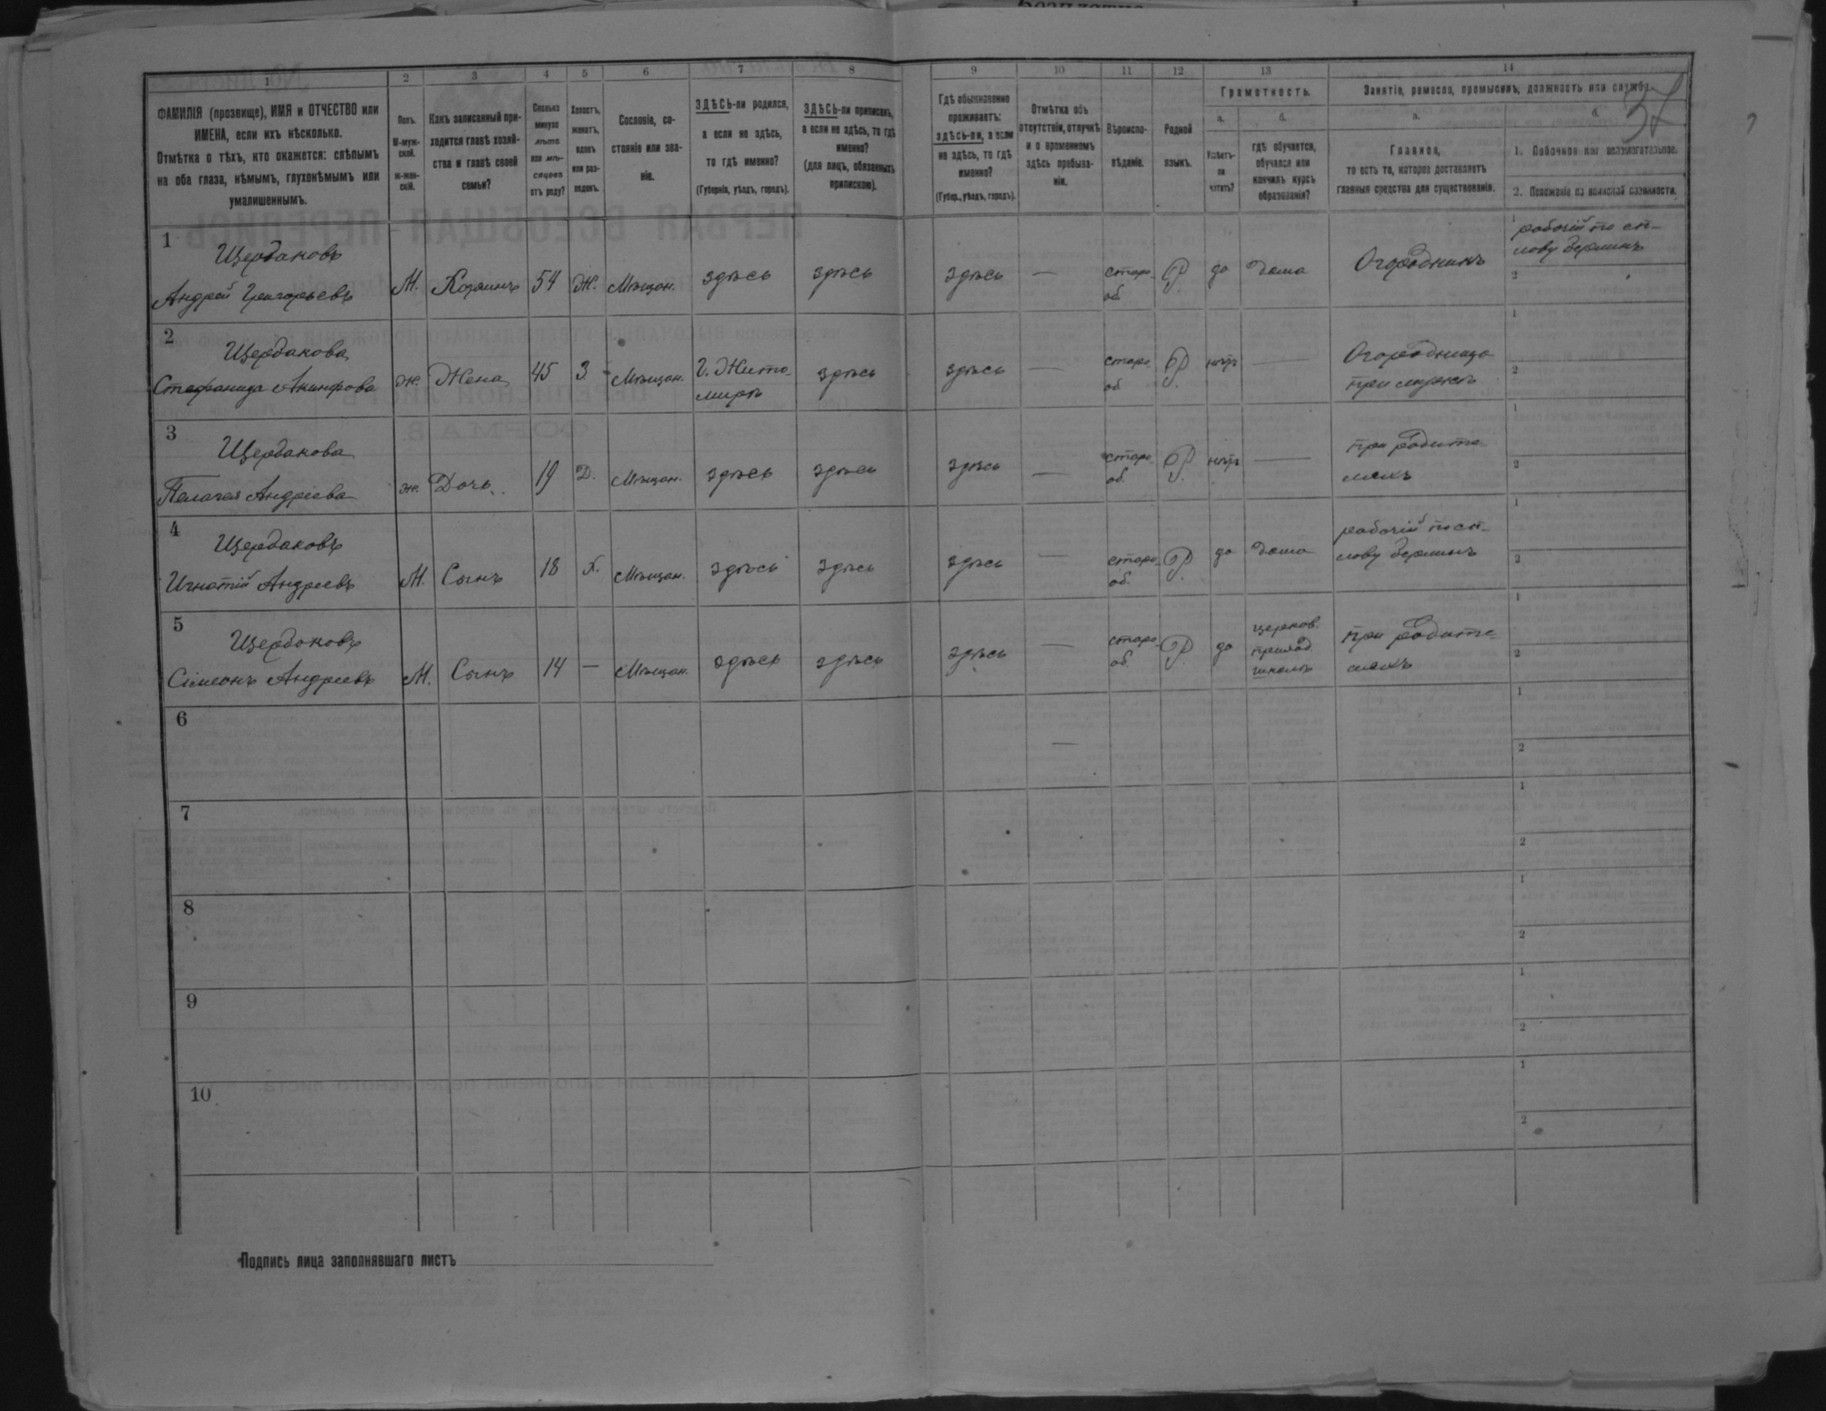 1
2
3
4
5
6
7
8
9
10
11
12
13
14
ФАМИЛІЯ (прозвище), ИМЯ и ОТЧЕСТВО или
ИМЕНА, если ихъ нѣсколько.
Отмѣтка о тѣхъ, кто окажется: слѣпымъ
на оба глаза, нѣмымъ, глухонѣмымъ или
умалишеннымъ.
Полъ.
М-муж-
ской.
ж-жен-
скій.
Какъ записанный при-
ходится главѣ хозяй-
ства и главѣ своей
семьи?
Сколько
минуло
лѣтъ
или мѣ-
сяцевъ
отъ роду?
Холостъ,
женатъ,
вдовъ
или раз-
веденъ.
Сословіе, со-
стояніе или зва-
ніе.
ЗДѢСЬ-ли родился,
а если не здѣсь,
то гдѣ именно?
(Губернія, уѣздъ, городъ).
ЗДѢСЬ-ли приписанъ,
а если не здѣсь, то гдѣ
именно?
(для лицъ, обязанныхъ
припискою).
Гдѣ обыкновенно
проживаетъ:
здѣсь-ли, а если
не здѣсь, то гдѣ
именно?
(Губер., уѣздъ, городъ).
Отмѣтка объ
отсутствіи, отлучкѣ
и о временномъ
здѣсь пребыва-
ніи.
Вѣроиспо-
вѣданіе.
Родной
языкъ.
Грамотность.
а.
Умѣетъ-
ли
читать?
б.
гдѣ обучается,
обучался или
кончилъ курсъ
образованія?
Занятіе, ремесло, промыселъ, должность или служба.
а.
Главное,
то есть то, которое доставляетъ
главныя средства для существованія.
б.
1. Побочное или вспомогательное.
2. Положеніе по воинской повинности.
37
1
Щербаковъ
Андрей Григорьевъ
М. Хозяинъ 54 Ж. Мѣщан. здѣсь здѣсь здѣсь — старо-
об. Р да дома Огородникъ
1 рабочій по
2
2
Щербакова
Стефанида Акинфова
ж. Жена 45 З. Мѣщан. Г. Жито-
миръ здѣсь здѣсь — старо-
об. Р. нѣтъ — Огородница
при мужѣ
1
2
3
Щербакова
Пелагея Андреева
ж. Дочь 19 Д. Мѣщан. здѣсь здѣсь здѣсь — старо-
об. Р. нѣтъ — при родите-
ляхъ
1
2
4
Щербаковъ
Игнатій Андреевъ
М. Сынъ 18 Х. Мѣщан. здѣсь здѣсь здѣсь — старо-
об. Р. да дома рабочій по
1
2
5
Щербаковъ
Сімеонъ Андреевъ
М. Сынъ 14 — Мѣщан. здѣсь здѣсь здѣсь — старо-
об. Р да церков.
приход.
школѣ при родите-
ляхъ
1
2
6
—
1
2
7
1
2
8
1
2
9
1
2
10
1
2
Подпись лица заполнявшаго листъ